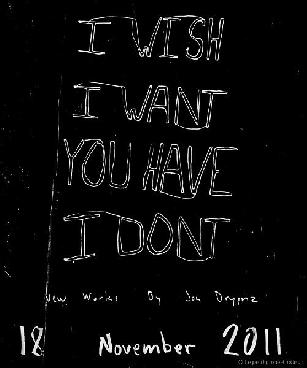 I WISH
I WANT
YOU HAVE
I DONT
New Works By
18 November 2011